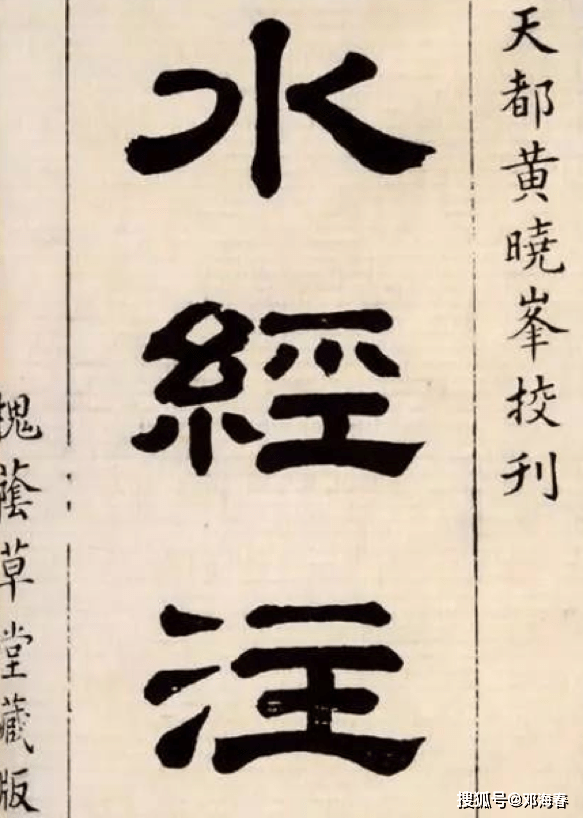 天都黄曉峯挍刊
水經注
槐蔭草堂藏版
搜狐号@邓海春